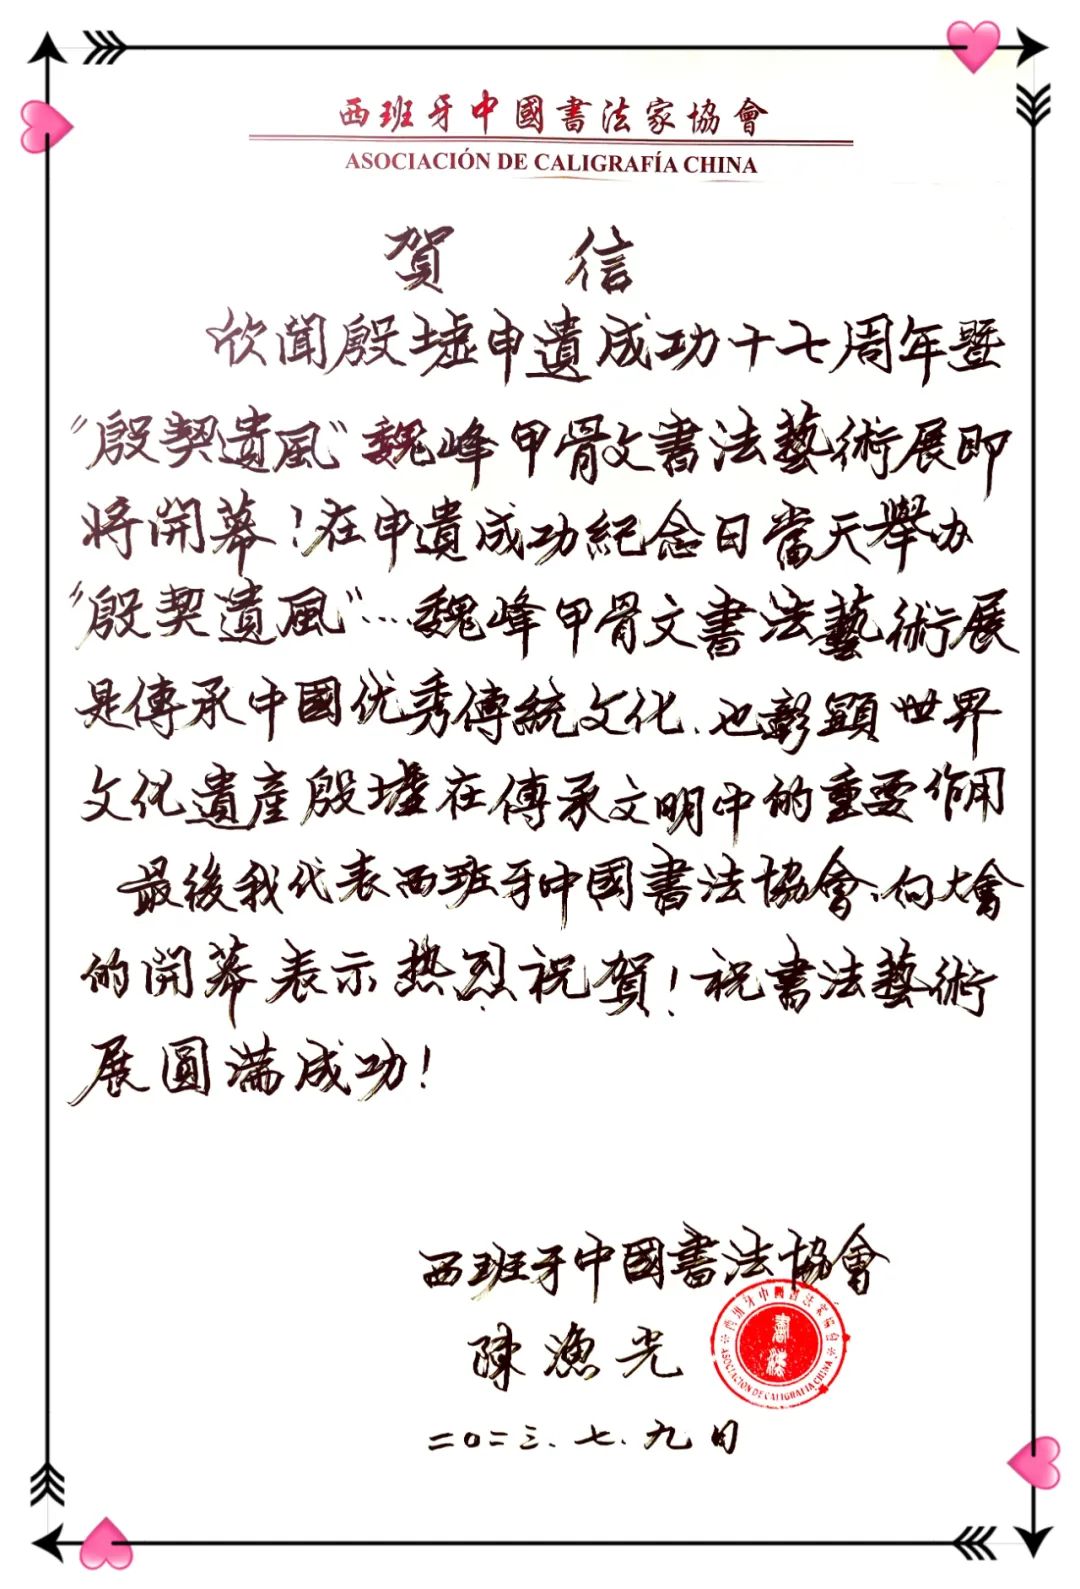 西班牙中國書法家協會
ASOCIACIÓN DE CALIGRAFÍA CHINA
賀 信
欣聞殷墟申遺成功十七周年暨
"殷契遺風"魏峰甲骨文書法藝術展即
將開幕！在申遺成功紀念日當天舉办
"殷契遺風"…魏峰甲骨文書法藝術展
是傳承中國优秀傳統文化、也彰顯世界
文化遺產殷墟在傳承文明中的重要作用
最後我代表西班牙中國書法協會、向大會
的開幕表示热烈祝賀！祝書法藝術
展圓满成功！
西班牙中國書法協會
陳漁光
二〇二三、七、九日
西班牙中國書法家協會
書法
ASOCIACION DE CALIGRAFIA CHINA